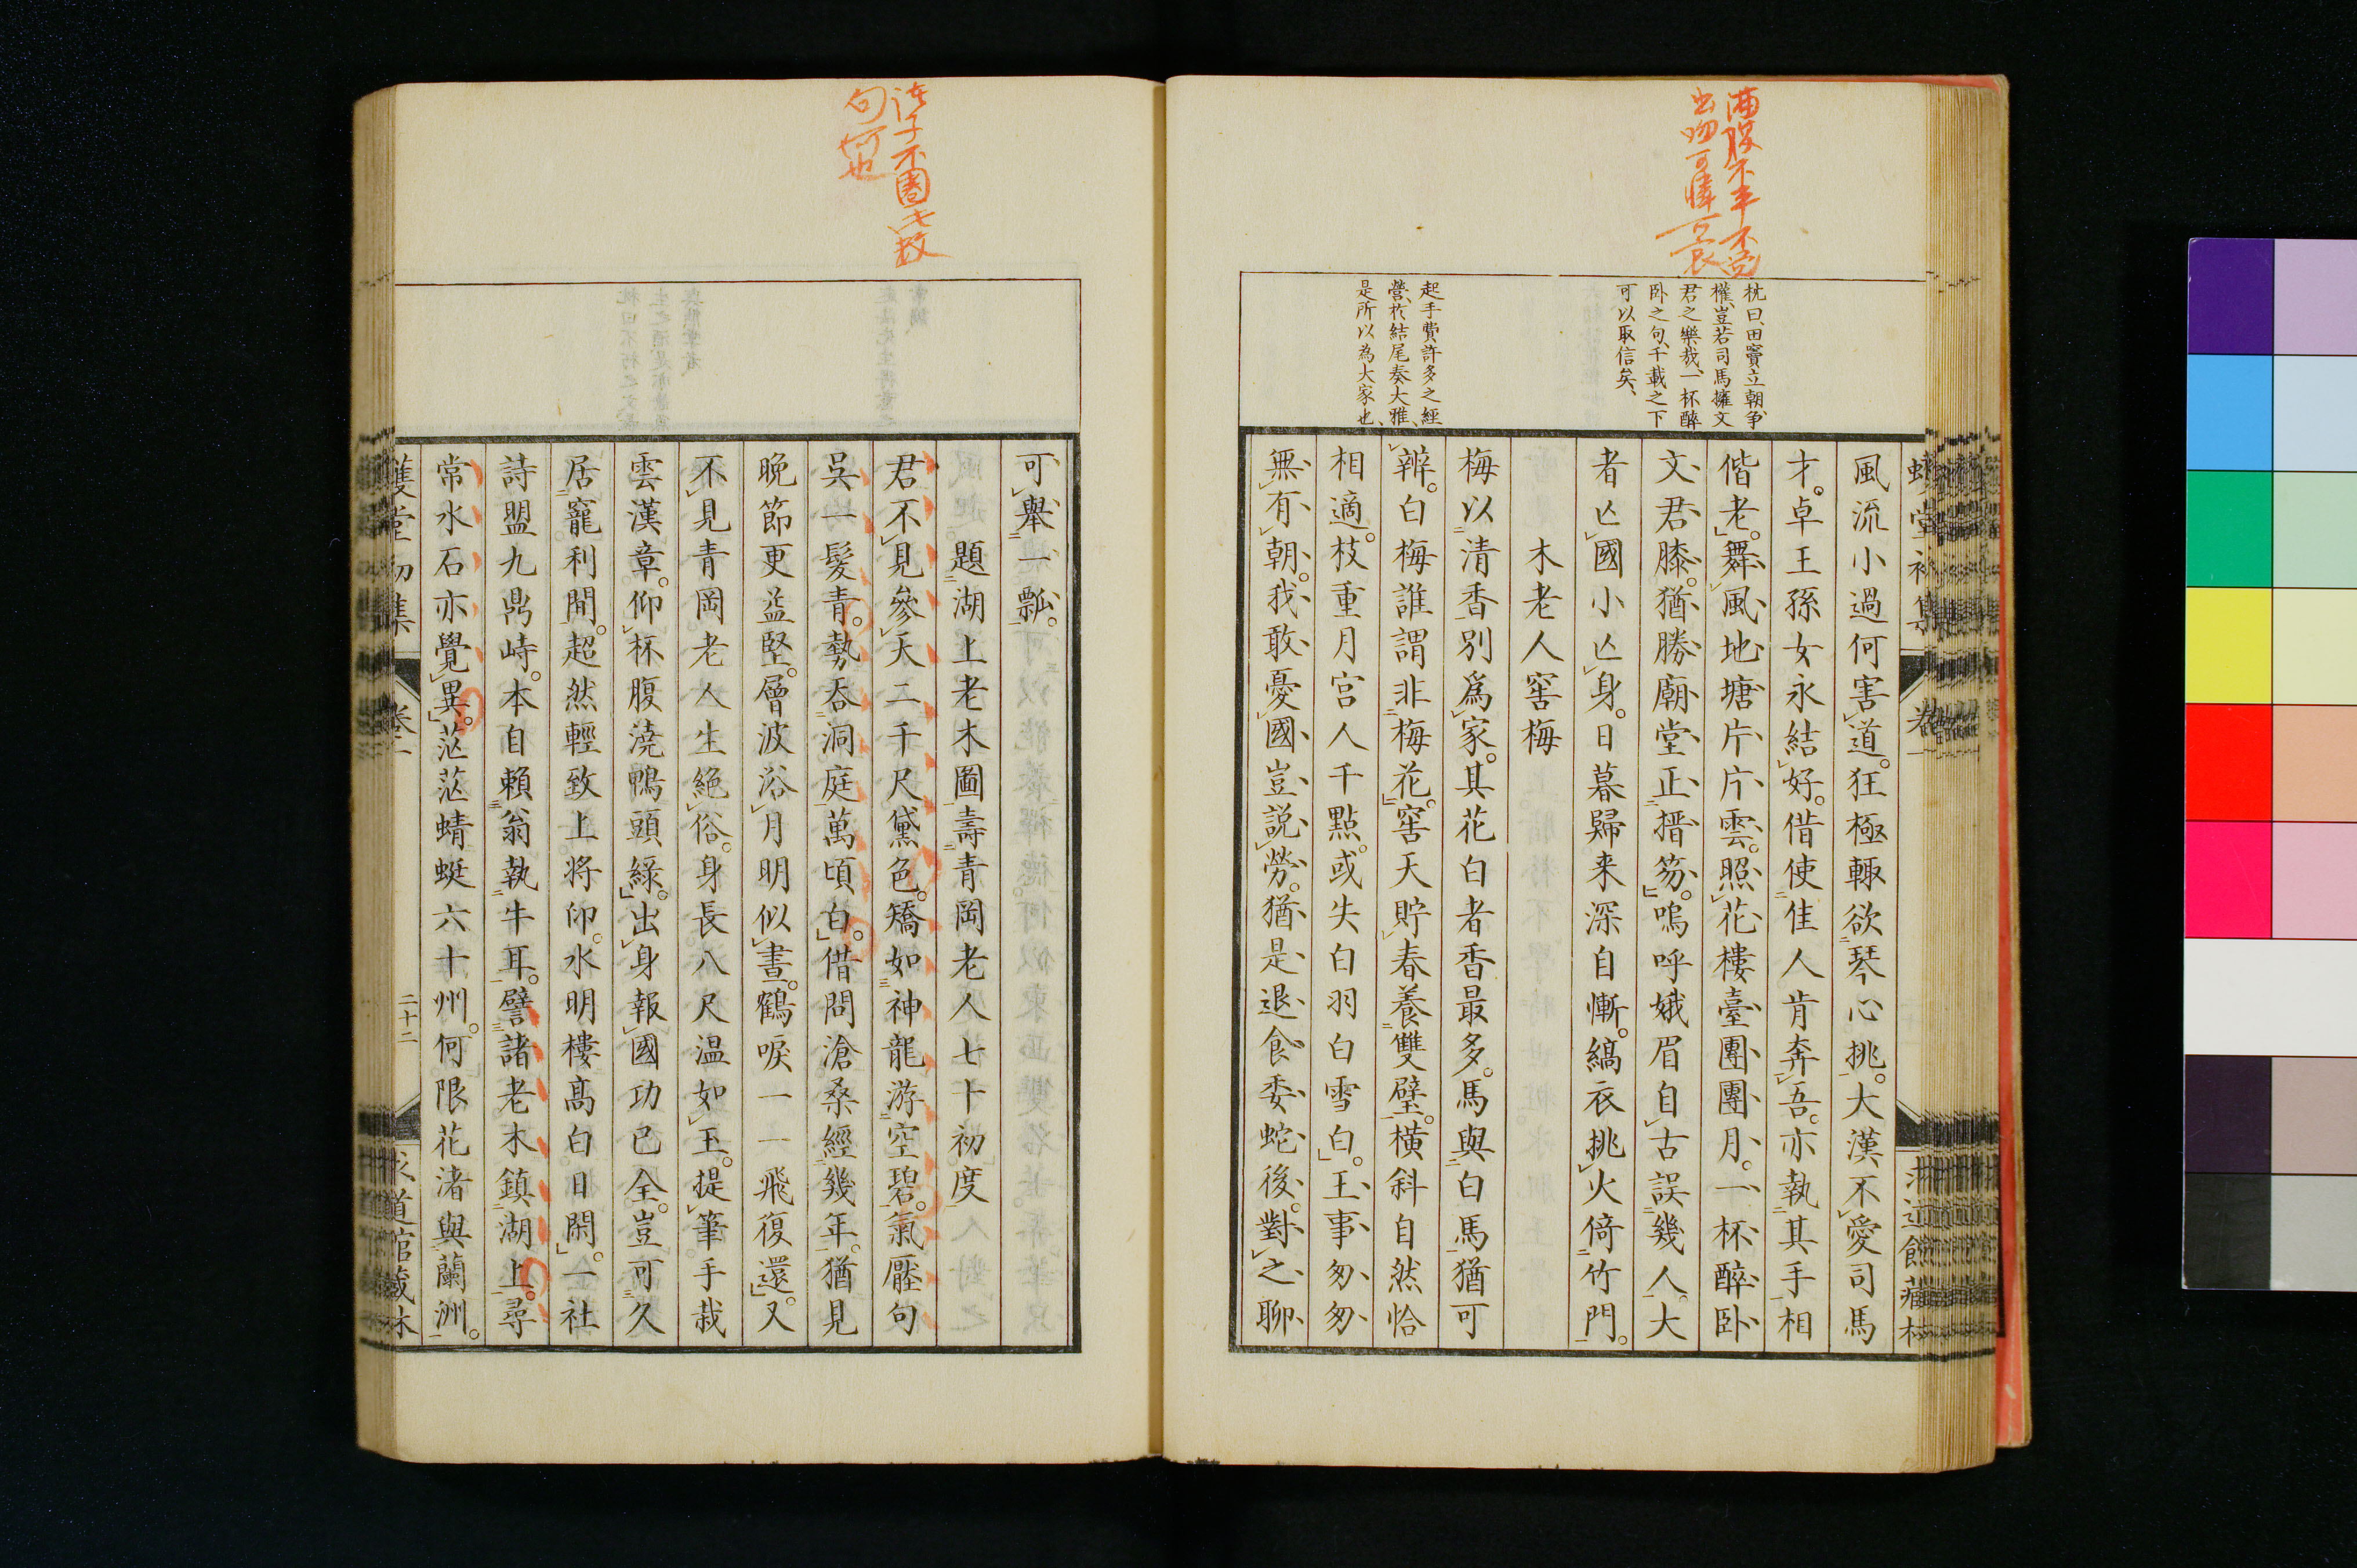 枕曰、田竇立朝争
權、豈若司馬擁文
君之樂哉、一杯醉
卧之句、千載之下
可以取信矣、
起手費許多之經
營、於結尾奏大雅、
是所以為大家也、
風流小過何害道。狂極輙欲琴心挑。大漢不愛司馬
才。卓王孫女永結好。借使佳人肯奔吾。亦執其手相
偕老。舞風地塘片片雲。照花樓臺團團月。一杯醉卧
文君膝。猶勝廟堂正搢笏。嗚呼娥眉自古誤幾人。大
者亾國小亾身。日暮歸来深自慚。縞衣挑火倚竹門。
木老人窖梅
梅以清香別爲家。其花白者香最多。馬與白馬猶可
辨。白梅誰謂非梅花。窖天貯春養雙璧。橫斜自然恰
相適。枝重月宫人千點。或失白羽白雪白。王事匆匆
無有朝。我敢憂國豈説勞。猶是退食委蛇後。對之聊
可舉一瓢。
題湖上老木圖壽青岡老人七十初度
君不見參天二千尺黛色。矯如神龍游空碧。氣壓句
吳一髮青。勢吞洞庭萬頃白。借問滄桑經幾年。猶見
晩節更益堅。層波浴月明似晝。鶴唳一一飛復還。又
不見青岡老人生絶俗。身長八尺温如玉。提筆手裁
雲漢章。仰杯腹澆鴨頭緑。出身報國功已全。豈可久
居寵利間。超然輕致上将印。水明樓髙白日閑。一社
詩盟九鼎峙。本自賴翁執牛耳。譬諸老木鎮湖上。尋
常水石亦覺異。茫茫蜻蜓六十州。何限花渚與蘭洲。
二十二